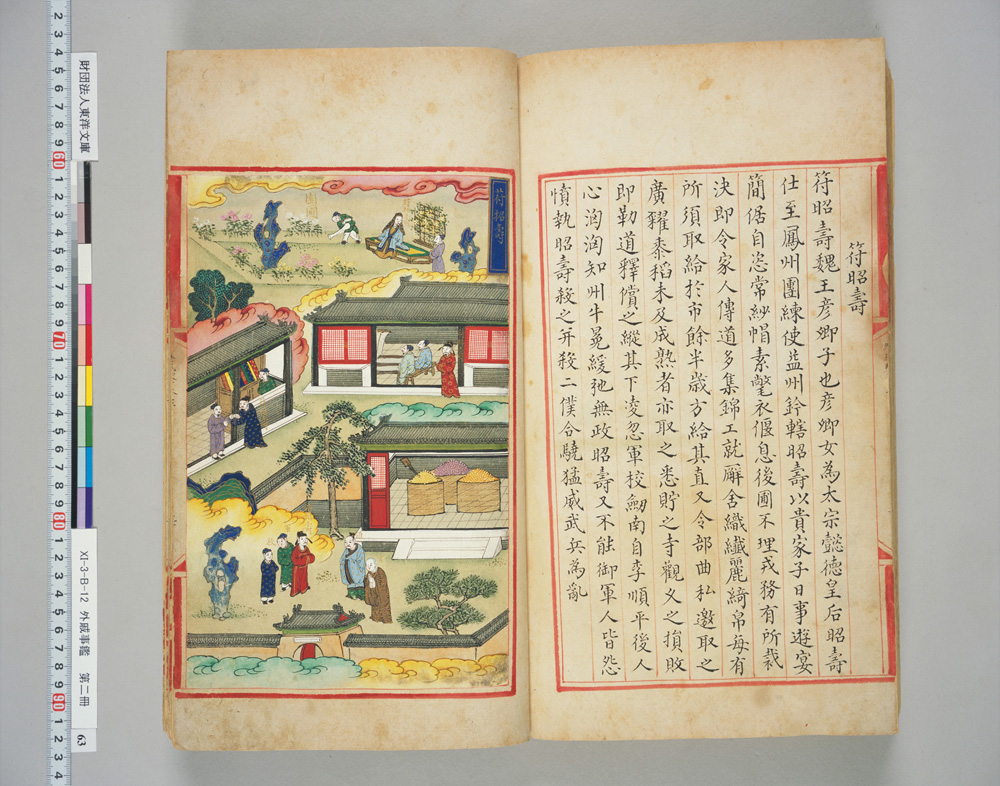 符昭壽
符昭壽魏王彥卿子也彥卿女為太宗懿德皇后昭壽
仕至鳳州團練使益州鈐轄昭壽以貴家子日事遊宴
簡倨自恣常紗帽素氅衣偃息後圃不理戎務有所裁
決即令家人傳道多集錦工就廨舍織纖麗綺帛每有
所須取給於市餘半歲方給其直又令部曲私邀取之
廣糴黍稻未及成熟者亦取之悉貯之寺觀久之損敗
即勒道釋償之縱其下凌忽軍校劒南自李順平後人
心洶洶知州牛冕緩弛無政昭壽又不能御軍人皆怨
憤執昭壽殺之并殺二僕合驍猛威武兵為亂
符昭壽
財団法人東洋文庫
XI-3-B-12 外戚事鑑 第二冊 63
2 3 4 5 6 7 8 9 60 1 2 3 4 5 6 7 8 9 70 1 2 3 4 5 6 7 8 9 80 1 2 3 4 5 6 7 8 9 90 1 2 3 4